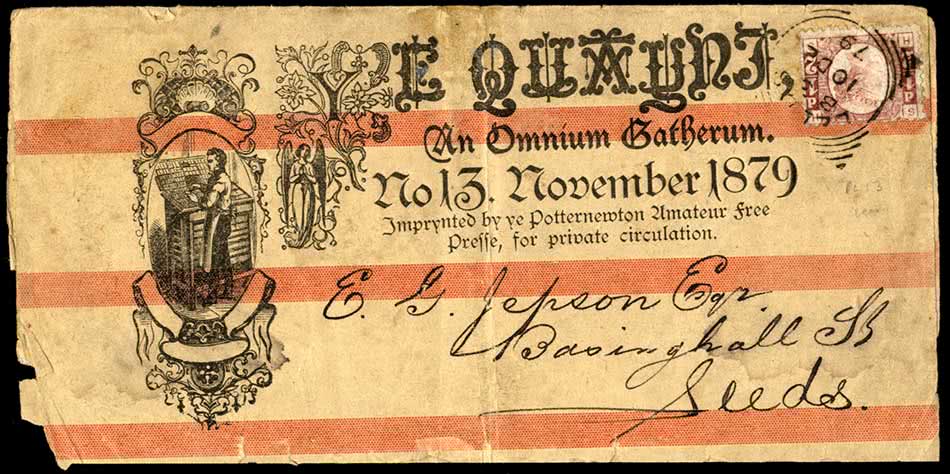 YE QUAYNT
An Omnium Gatherum.
No 13. November 1879
Imprynted by ye Potternewton Amateur Free
Presse, for private circulation.
E. G. Jepson Esqr
Basinghall St
Leeds.